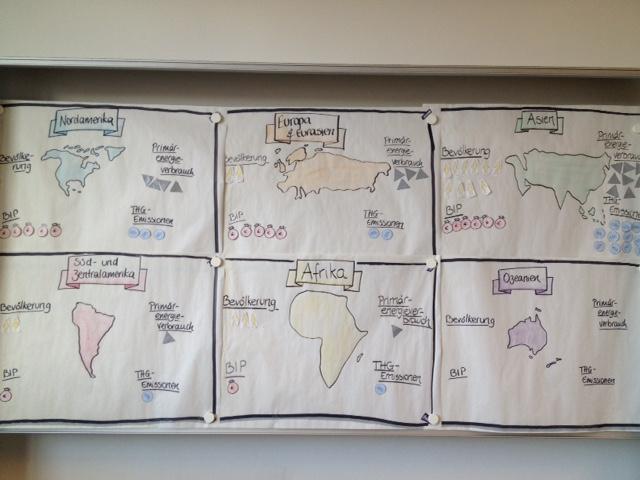 Nordamerika
Bevölke-
rung
Primär-
energie-
verbrauch
BIP
THG-
Emissionen
Europa
& Eurasien
Bevölkerung
Primär-
energie-
verbrauch
BIP
THG-
Emissionen
Asien
Bevölkerung
Primär-
energie-
verbrauch
BIP
THG-
Emissionen
Süd- und
Zentralamerika
Bevölkerung
Primär-
energie-
verbrauch
BIP
THG-
Emissionen
Afrika
Bevölkerung
Primär-
energiever-
brauch
BIP
THG-
Emissionen
Ozeanien
Bevölkerung
Primär-
energie-
verbrauch
BIP
THG-
Emissionen